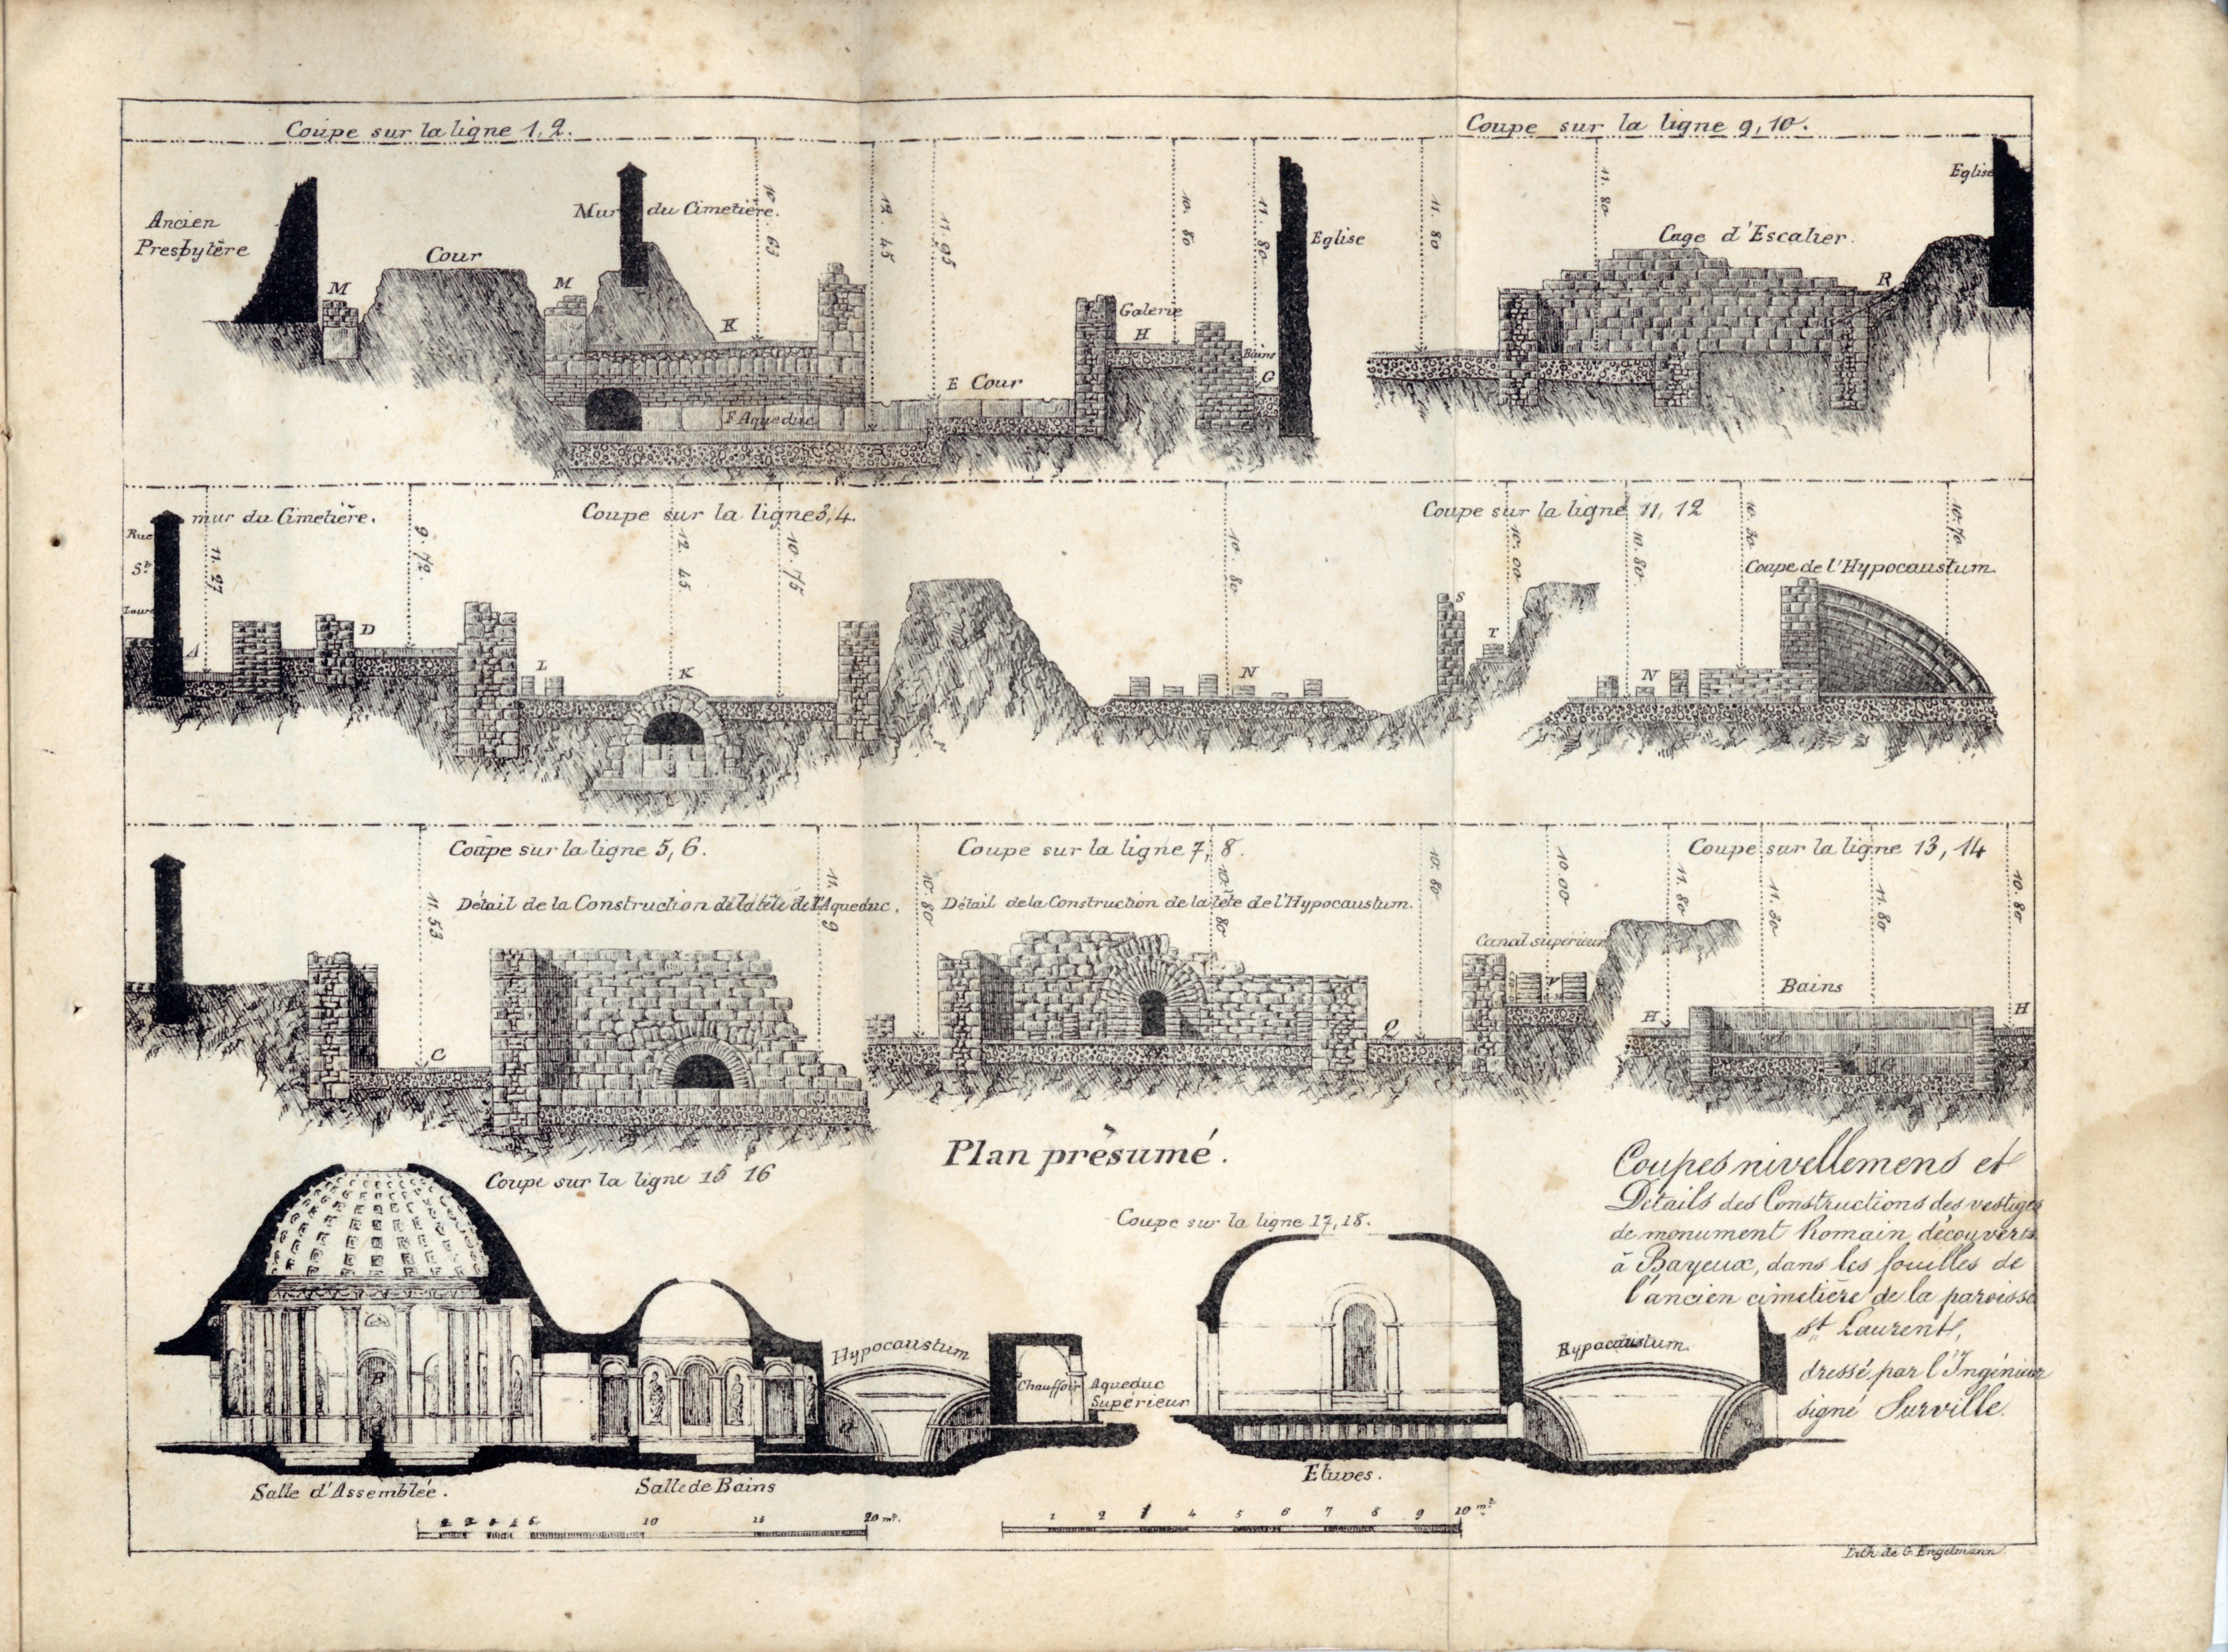 Coupe sur la ligne 1, 2.
Coupe sur la ligne 9, 10.
Ancien
Presbytère
M
Cour
M
Mur du Cimetière.
K
10. 63
12. 45
11. 95
10. 80
11. 80
F Aqueduc
E Cour
Galerie
H
Bains
G
Eglise
11. 80
11. 80
Cage d'Escalier.
R
Eglise
Rue
St
Laure
mur du Cimetière.
Coupe sur la ligne 3, 4.
Coupe sur la ligne 11, 12
11. 27
9. 72.
12. 45
10. 75
10. 80
10. 00
10. 80.
10. 30
10. 70
Coupe de l'Hypocaustum.
A
D
L
K
N
S
T
N
Coupe sur la ligne 5, 6.
Coupe sur la ligne 7, 8.
Coupe sur la ligne 13, 14
Détail de la Construction de la tête de l'Aqueduc.
Détail de la Construction de la tête de l'Hypocaustum.
11. 53
11. 9
10. 80
10. 80
10. 80
10. 00
11. 80
11. 30
11. 80
10. 80
Canal supérieur
Bains
C
Q
H
H
Plan présumé.
Coupe sur la ligne 15 16
Coupe sur la ligne 17, 18.
Coupes nivellemens et
Détails des Constructions des vestiges
de monument Romain découverts
à Bayeux, dans les fouilles de
l'ancien cimetière de la paroisse
St Laurent,
dressé par l'Ingénieur
signé Surville.
B
Hypocaustum
Chauffoir
Aqueduc
Supérieur
Hypocaustum.
Salle d'Assemblée.
Salle de Bains
Etuves.
1 2 3 4 5 10 15 20 mt.
1 2 3 4 5 6 7 8 9 10 mt
Lith. de G. Engelmann.